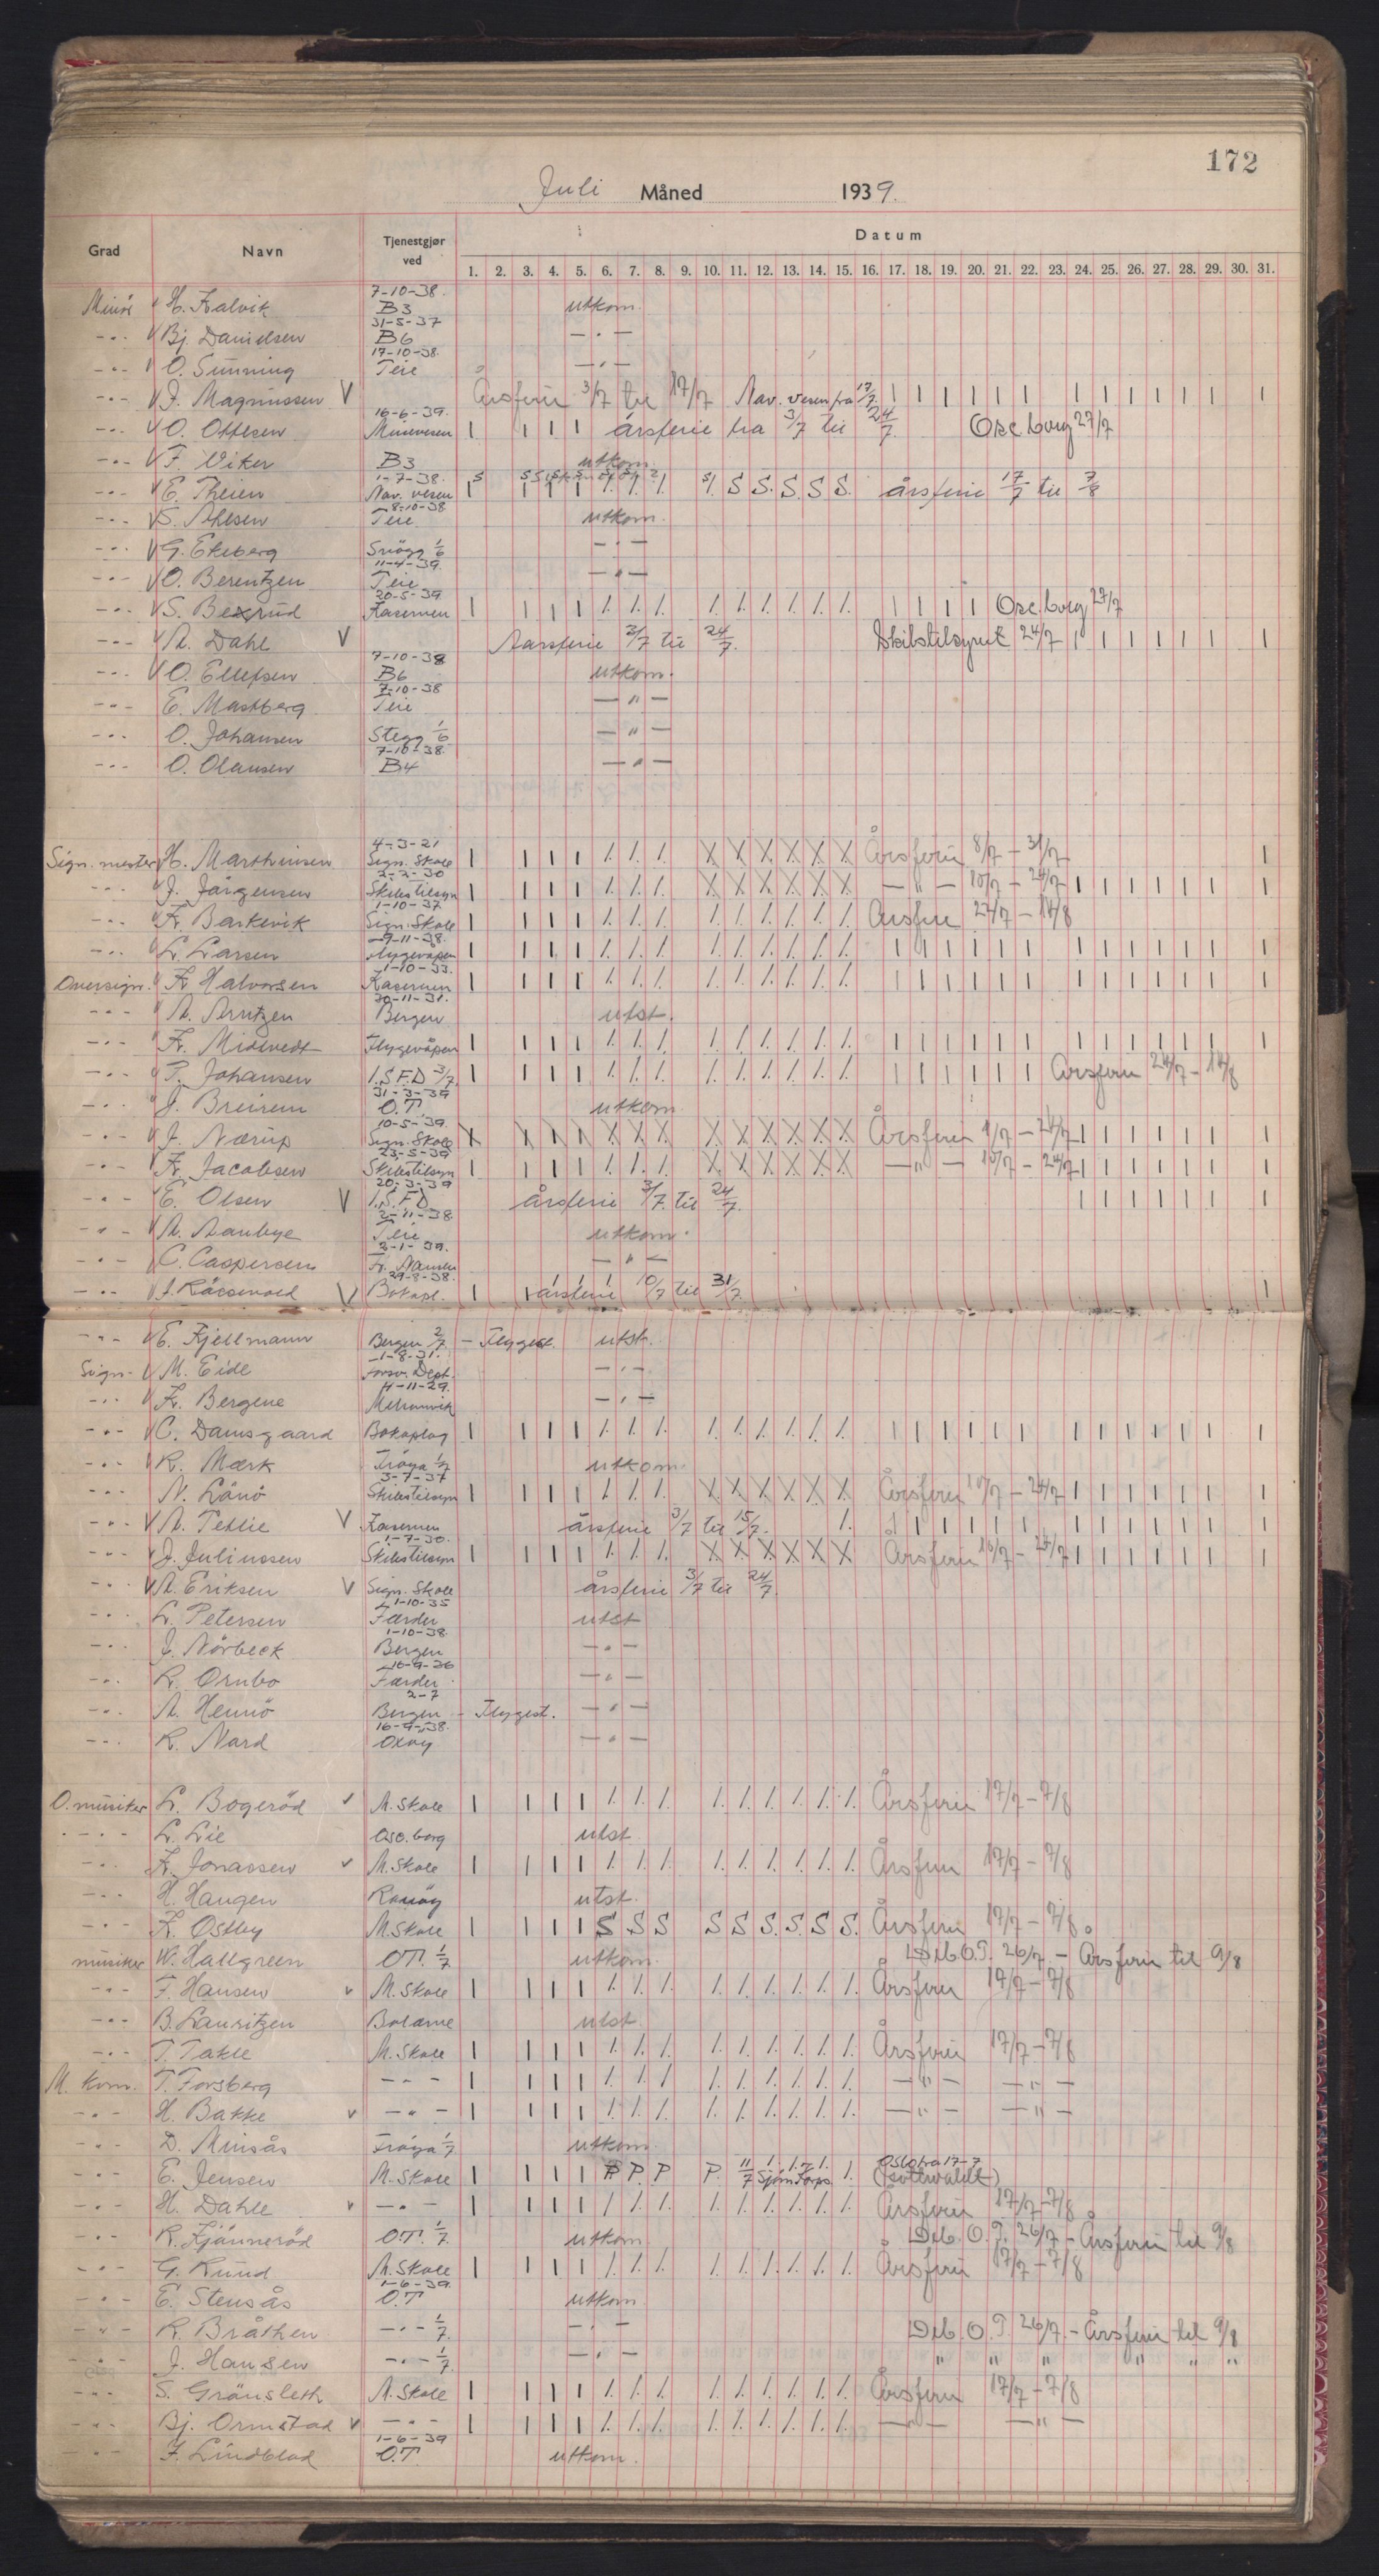 172
Juli Måned 1939.
Grad Navn Tjenestgjør ved Datum
1. 2. 3. 4. 5. 6. 7. 8. 9. 10. 11. 12. 13. 14. 15. 16. 17. 18. 19. 20. 21. 22. 23. 24. 25. 26. 27. 28. 29. 30. 31.
7-10-38.
Minör H. Kalvik B3 utkom.
31-5-37
-"- Bj. Danielsen B6 -"-
17-10-38.
-"- O. Sünning Teie -"-
-"- J. Magnussen V Årsferie 3/7 til 17/7 Nav. vesen fra 17/7 | | | | | | | | | | | | |
16-6-39.
-"- O. Ottesen Minevesen | | | | årsferie fra 3/7 til 24/7 Osc.borg 27/7
-"- F. Viker B3 utkom.
1-7-38.
-"- E. Theien Nav. vesen | | | | /. /. /. S/. S S. S. S S. årsferie 17/7 til 7/8
8-10-38
-"- S. Ahlsen Teie utkom.
-"- G. Ekeberg Snögg 1/6 -"-
11-4-39.
-"- O. Berentzen Teie -"-
20-5-39
-"- S. Bexrud Kasernen | | | | /. /. /. /. /. /. /. /. /. | | | | Osc.borg 27/7
-"- A. Dahl V Aarsferie 3/7 til 24/7. Skibstilsynet 24/7 | | | | | | |
7-10-38
-"- O. Ellefsen B6 utkom.
7-10-38
-"- E. Mastberg Teie -"-
-"- O. Johansen Stegg 1/6 -"-
7-10-38.
-"- O. Olausen B4 -"-
4-3-21
Sign. mester H. Marthinsen Sign. Skole | | | | /. /. /. X X X X X X Årsferie 8/7 - 31/7 |
2-2-30
-"- J. Jörgensen Skibstilsyn | | | | /. /. /. X X X X X X -"- 10/7 - 24/7 | | | | | | |
1-10-37
-"- Kr. Barkevik Sign. Skole | | | | /. /. /. /. /. /. /. /. /. Årsferie 24/7 - 14/8
-9-11-38.
-"- L. Larsen Flygevåpen | | | | /. /. /. /. /. /. /. /. /. | | | | | | | | | | | | |
1-10-33.
Oversign. Kr. Halvorsen Kasernen | | | | /. /. /. /. /. /. /. /. /. | | | | | | | | | | | | |
20-11-31.
-"- A. Arntzen Bergen utst.
-"- Kr. Midtvedt Flygevåpen | | | | /. /. /. /. /. /. /. /. /. | | | | | | | | | | | | |
-"- T. Johansen I.S.F.D 3/7. | | | | /. /. /. /. /. /. /. /. /. | | | | | | Årsferie 24/7 - 14/8
31-3-39
-"- J. Breirem O.T. utkom
10-5-39.
-"- J. Nærup Sign. Skole X X X X X X X X X X X X X Årsferie 1/7 - 24/7 | | | | | | |
23-5-39
-"- Kr. Jacobsen Skibstilsyn | | | | /. /. /. X X X X X X -"- 10/7 - 24/7 | | | | | | |
20-3-39
-"- E. Olsen V I.S.F.D årsferie 3/7. til 24/7. | | | | | | |
2-11-38
-"- A. Aanbye Teie utkom.
3-1-39.
-"- C. Caspersen Fr. Nansen -"-
29-8-38.
-"- V Bokopl. | | årsferie 10/7 til 31/7 |
-"- E. Kjellmann Bergen 2/7 - Flygest. utst.
1-8-31.
Sign. M. Eide Forsv. Dept. -"-
4-11-29.
-"- Kr. Bergene -"-
-"- C. Damsgaard Bokoplag | | | | /. /. /. /. /. /. /. /. /. | | | | | | | | | | | | |
-"- R. Mærk Fröya 1/7 utkom.
3-7-37
-"- N. Lönö Skibstilsyn | | | | /. /. /. X X X X X X Årsferie 10/7 - 24/7 | | | | | | |
-"- A. Pettie V Kasernen årsferie 3/7 til 15/7. /. | | | | | | | | | | | | |
1-7-30.
-"- J. Julinssen Skibstilsyn | | | | /. /. /. X X X X X X Årsferie 10/7 - 24/7 | | | | | | |
-"- A. Eriksen V Sign. Skole årsferie 3/7 til 24/7.
1-10-35
-"- L. Petersen Færder utst
1-10-38.
-"- J. Nörbeck Bergen -"-
16-9-26
-"- R. Ørnbo Færder -"-
2-7
-"- A. Hennö Bergen - Flygest. -"-
16-9-38.
-"- R. Nord Oxöy -"-
O. musiker L. Bogeröd M. Skole | | | | /. /. /. /. /. /. /. /. /. Årsferie 17/7 - 7/8
-"- L. Lie Osc.borg utst
-"- Kr. Jonassen M. Skole | | | | /. /. /. /. /. /. /. /. /. Årsferie 17/7 - 7/8
-"- H. Haugen Rauöy utst.
-"- K. Østby M. Skole | | | | S S S S S S. S. S S. Årsferie 17/7 - 7/8.
musiker W. Hallgreen O.T. 1/7 utkom. Deb. O.T. 26/7 - Årsferie til 9/8
-"- F. Hansen M. Skole | | | | /. /. /. /. /. /. /. /. /. Årsferie 17/7 - 7/8
-"- B. Lauritzen Bolærne utst.
-"- T. Takle M. Skole | | | | /. /. /. /. /. /. /. /. /. Årsferie 17/7 - 7/8
M. korn. T. Forsberg -"- | | | | /. /. /. /. /. /. /. /. /. -"- -"-
-"- H. Bakke -"- | | | | /. /. /. /. /. /. /. /. /. -"- -"-
-"- D. Minsås Fröya 1/7 utkom.
-"- E. Jensen M. Skole | | | | P. P. P P. 11/7 Sjöm. Korps /. Oslo fra 17-7
-"- H. Dahle -"- | | | | /. /. /. /. /. /. /. /. /. Årsferie 17/7 - 7/8.
-"- R. Kjönneröd O.T. 1/7. utkom Deb. O.T. 26/7 - Årsferie til 9/8
-"- G. Rund M. Skole | | | | /. /. /. /. /. /. /. /. /. Årsferie 17/7 - 7/8
1-6-39.
-"- E. Stensås O.T utkom.
-"- R. Bråthen -"- 1/7. -"- Deb. O.T. 26/7 - Årsferie til 9/8
-"- J. Hansen -"- 1/7. -"- " " " " " "
-"- S. Grönsleth M. Skole | | | | /. /. /. /. /. /. /. /. /. Årsferie 17/7 - 7/8
-"- Bj. Ormstad -"- | | | | /. /. /. /. /. /. /. /. /. -"- -"-
1-6-39
-"- F. Lindblad O.T. utkom.